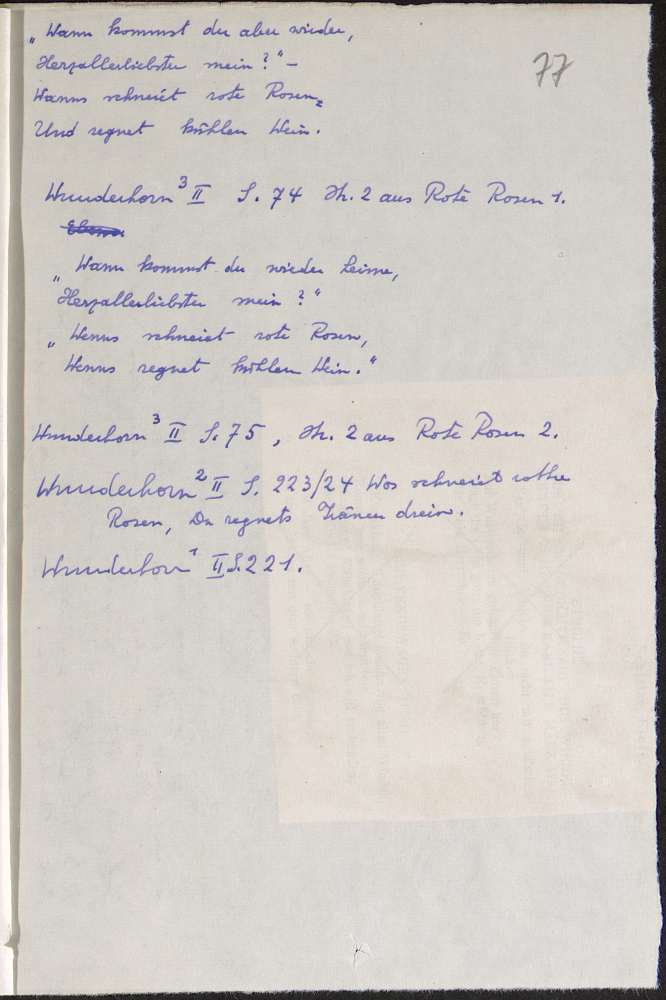 „Wann kommst du aber wieder,
Herzallerliebster mein?" –
77
Wanns schneiet rote Rosen,
Und regnet kühlen Wein.
Wunderhorn³ II S. 74 Str. 2 aus Rote Rosen 1.
„Wann kommst du wieder heime,
Herzallerliebster mein?"
„Wenns schneiet rote Rosen,
Wenns regnet kühlen Wein."
Wunderhorn³ II S. 75, Str. 2 aus Rote Rosen 2.
Wunderhorn² II S. 223/24 Wos schneiet rothe
Rosen, Da regnets Tränen drein.
Wunderhorn¹ II S. 221.